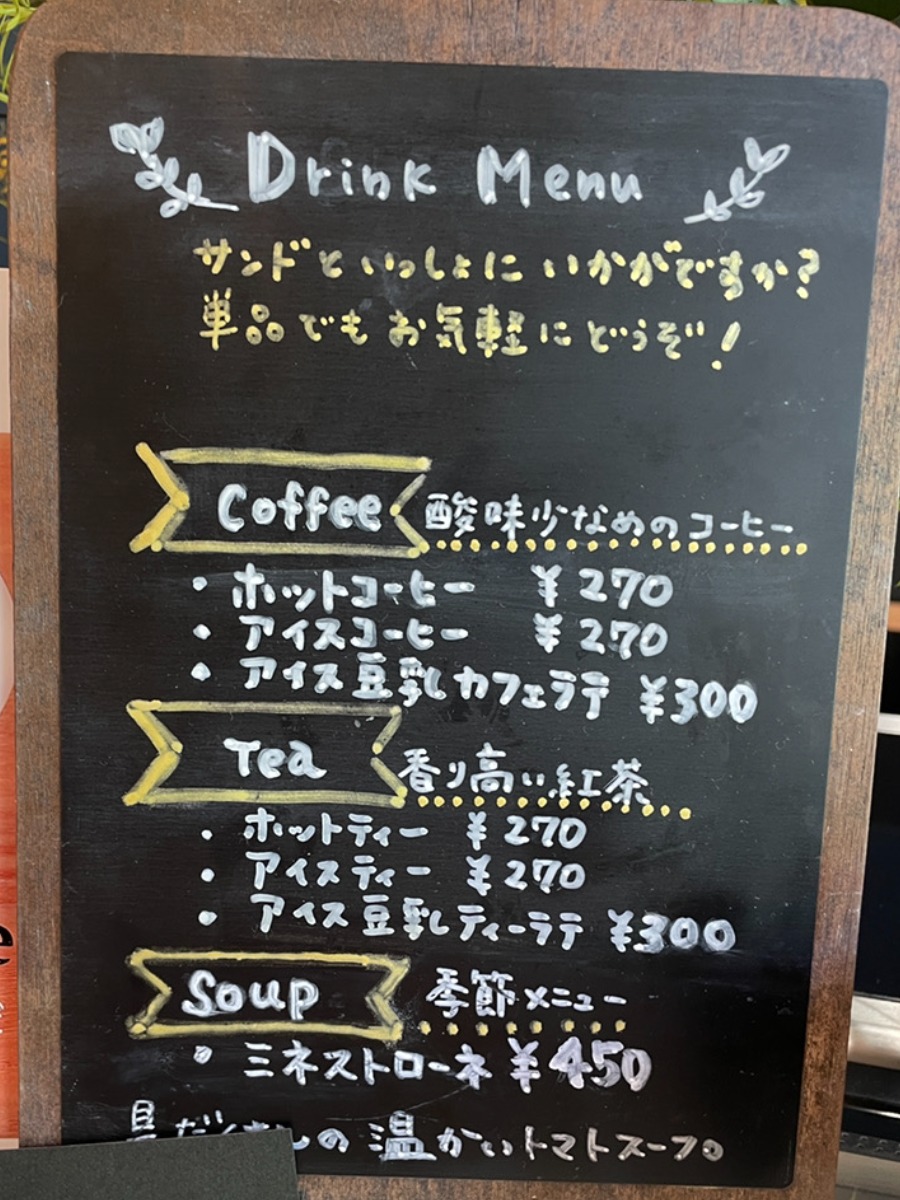 Drink Menu
サンドといっしょにいかがですか?
単品でもお気軽にどうぞ!
Coffee 酸味少なめのコーヒー
・ホットコーヒー ¥270
・アイスコーヒー ¥270
・アイス豆乳カフェラテ ¥300
Tea 香り高い紅茶
・ホットティー ¥270
・アイスティー ¥270
・アイス豆乳ティーラテ ¥300
Soup 季節メニュー
・ミネストローネ ¥450
具だくさんの温かいトマトスープ。